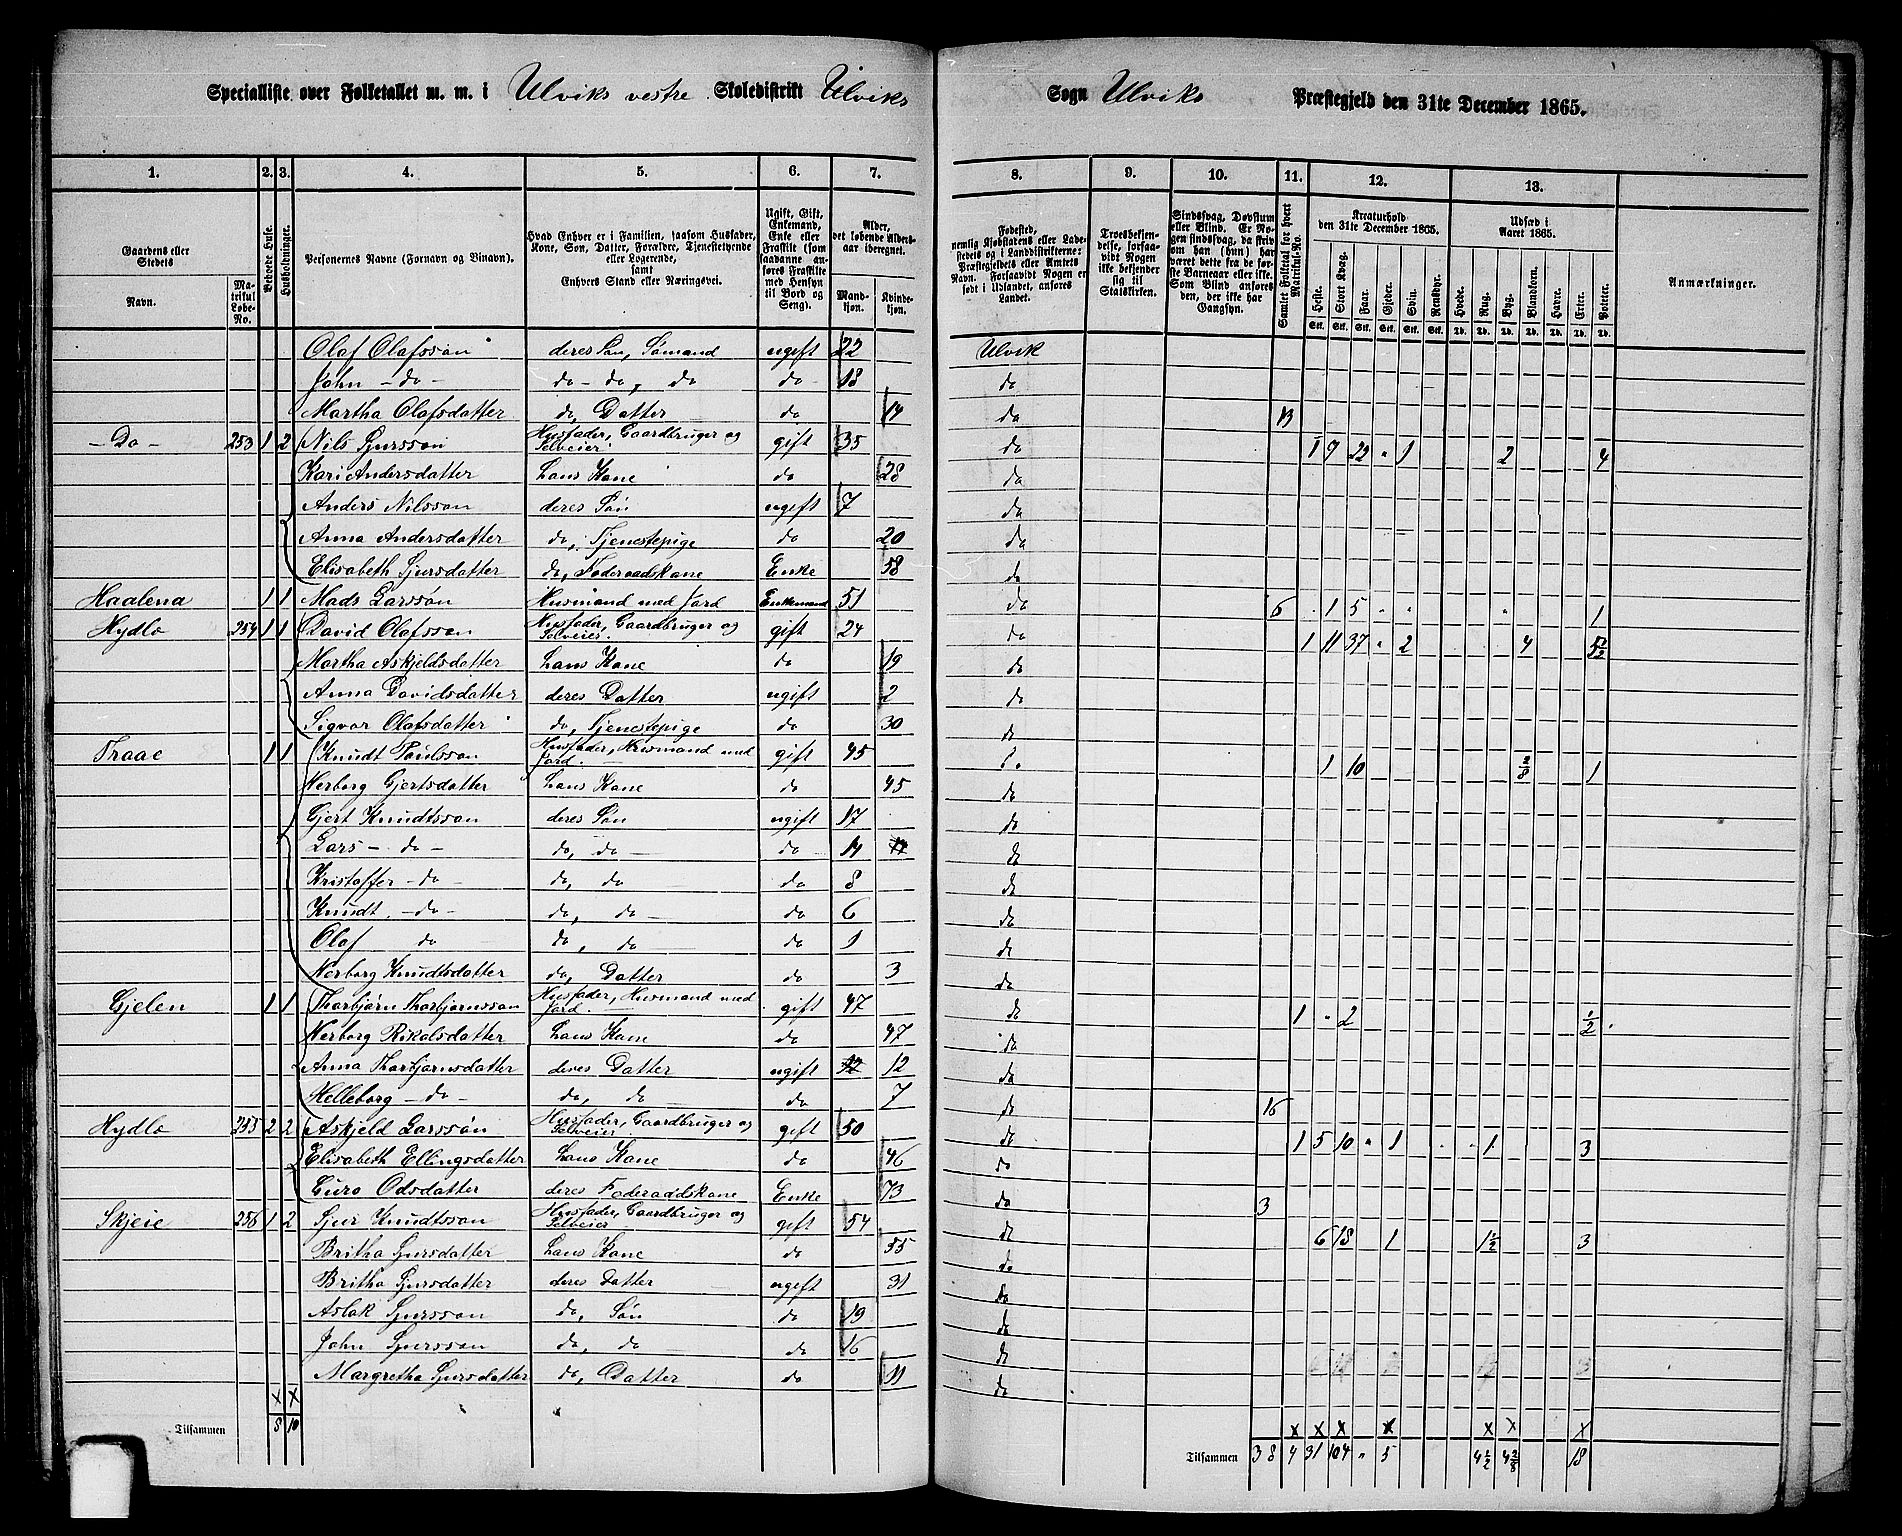 Specialliste over Folketallet m. m. i Ulviks vestre Skoledistrikt Ulviks Sogn Ulviks Præstegjeld den 31te December 1865.
1. 2. 3. 4. 5. 6. 7. 8. 9. 10. 11. 12. 13.
Gaardens eller Stedets
Navn.
Matrikul Løbe-No.
Beboede Huse.
Husholdninger.
Personernes Navne (Fornavn og Tilnavn).
Hvad Enhver er i Familien, saasom Husfader, Kone, Søn, Datter, Forældre, Tjenestetyende eller Logerende, samt Enhvers Stand eller Næringsvei.
Ugift, Gift, Enkemand, Enke eller Fraskilt (som saadanne anføres Fraskilte med Hensyn til Bord og Seng).
Alder, det løbende Alders-aar iberegnet.
Mandkjøn. Kvindekjøn.
Fødested, nemlig Kjøbstadens eller Ladestedets og i Landdistrikterne: Præstegjeldets eller Amtets Navn. Forsaavidt Nogen er født i Udlandet, anføres Landet.
Troesbekjendelse, forsaavidt Nogen ikke bekjender sig til Statskirken.
Sindssvag, Døvstum eller Blind. Er Nogen sindssvag, da skriv om han (hun) har været dette fra de første Barneaar eller ikke. Som Blind anføres den, der ikke har Gangsyn.
Samlet Folketal for hvert Matrikul-No.
Kreaturhold den 31te December 1865.
Heste. Stort Kvæg. Faar. Gjeder. Svin. Rensdyr.
Udsæd i Aaret 1865.
Hvede. Rug. Byg. Blandkorn. Havre. Erter. Poteter.
Anmærkninger.
Olaf Olafsson deres Søn, Sømand ugift 22 Ulvik
John - do - do - do, do do 18 do
Martha Olafsdatter do, Datter do 14 do 13
- Do - 253 1 2 Nils Sjursson Husfader, Gaardbruger og Selveier gift 35 do 1 9 22 " 1 2 4
Kari Andersdatter hans Kone do 28 do
Anders Nilsson deres Søn ugift 7 do
Anna Andersdatter do, Tjenestepige do 20 do
Elisabeth Sjursdatter do, Føderaadskone Enke 58 do
Haalena 1 1 Mads Larsson Husmand med Jord Enkemand 51 do 6 1 5 " " 1
Hydlo 254 1 1 David Olafsson Husfader, Gaardbruger og Selveier gift 24 do 1 11 37 " 2 4 5/2
Martha Askjeldsdatter hans Kone do 19 do
Anna Davidsdatter deres Datter ugift 2 do
Sigvor Olafsdatter do, Tjenestepige do 30 do
Traae 1 1 Knudt Paulsson Husfader, Husmand med Jord gift 45 1 10 1
Herborg Gjertsdatter hans Kone do 45 do
Gjert Knudtsson deres Søn ugift 17 do
Lars - do - do, do - do 14 do
Kristoffer - do - do, do do 8 do
Knudt - do - do, do - do 6 do
Olaf do do, do do 1 do
Herborg Knudtsdatter do, Datter do 3 do
Gjelen 1 1 Thorbjørn Thorbjørnsson Husfader, Husmand med Jord gift 47 do 1 " 2 1/2
Herborg Rikolsdatter hans Kone do 47 do
Anna Thorbjørnsdatter deres Datter ugift 12 do
Helleborg - do - do, do do 7 do 16
Hydlo 255 2 2 Askjeld Larsson Husfader, Gaardbruger og Selveier gift 50 do 1 5 10 " 1 1 3
Elisabeth Ellingsdatter hans Kone do 46 do
Guro Odsdatter deres Føderaadskone Enke 73 do 3
Skjeie 256 1 2 Sjur Knudtsson Husfader, Gaardbruger og Selveier gift 54 do 6 18 1 1½ 3
Britha Sjursdatter hans Kone do 55 do
Britha Sjursdatter deres Datter ugift 31 do
Aslak Sjursson do, Søn do 19 do
John Sjursson do, do do 16 do
Margretha Sjursdatter do, Datter do 11 do
x x x x x x x x x
Tilsammen 8 10 Tilsammen 38 4 31 104 " 5 4½ 4 2/8 18